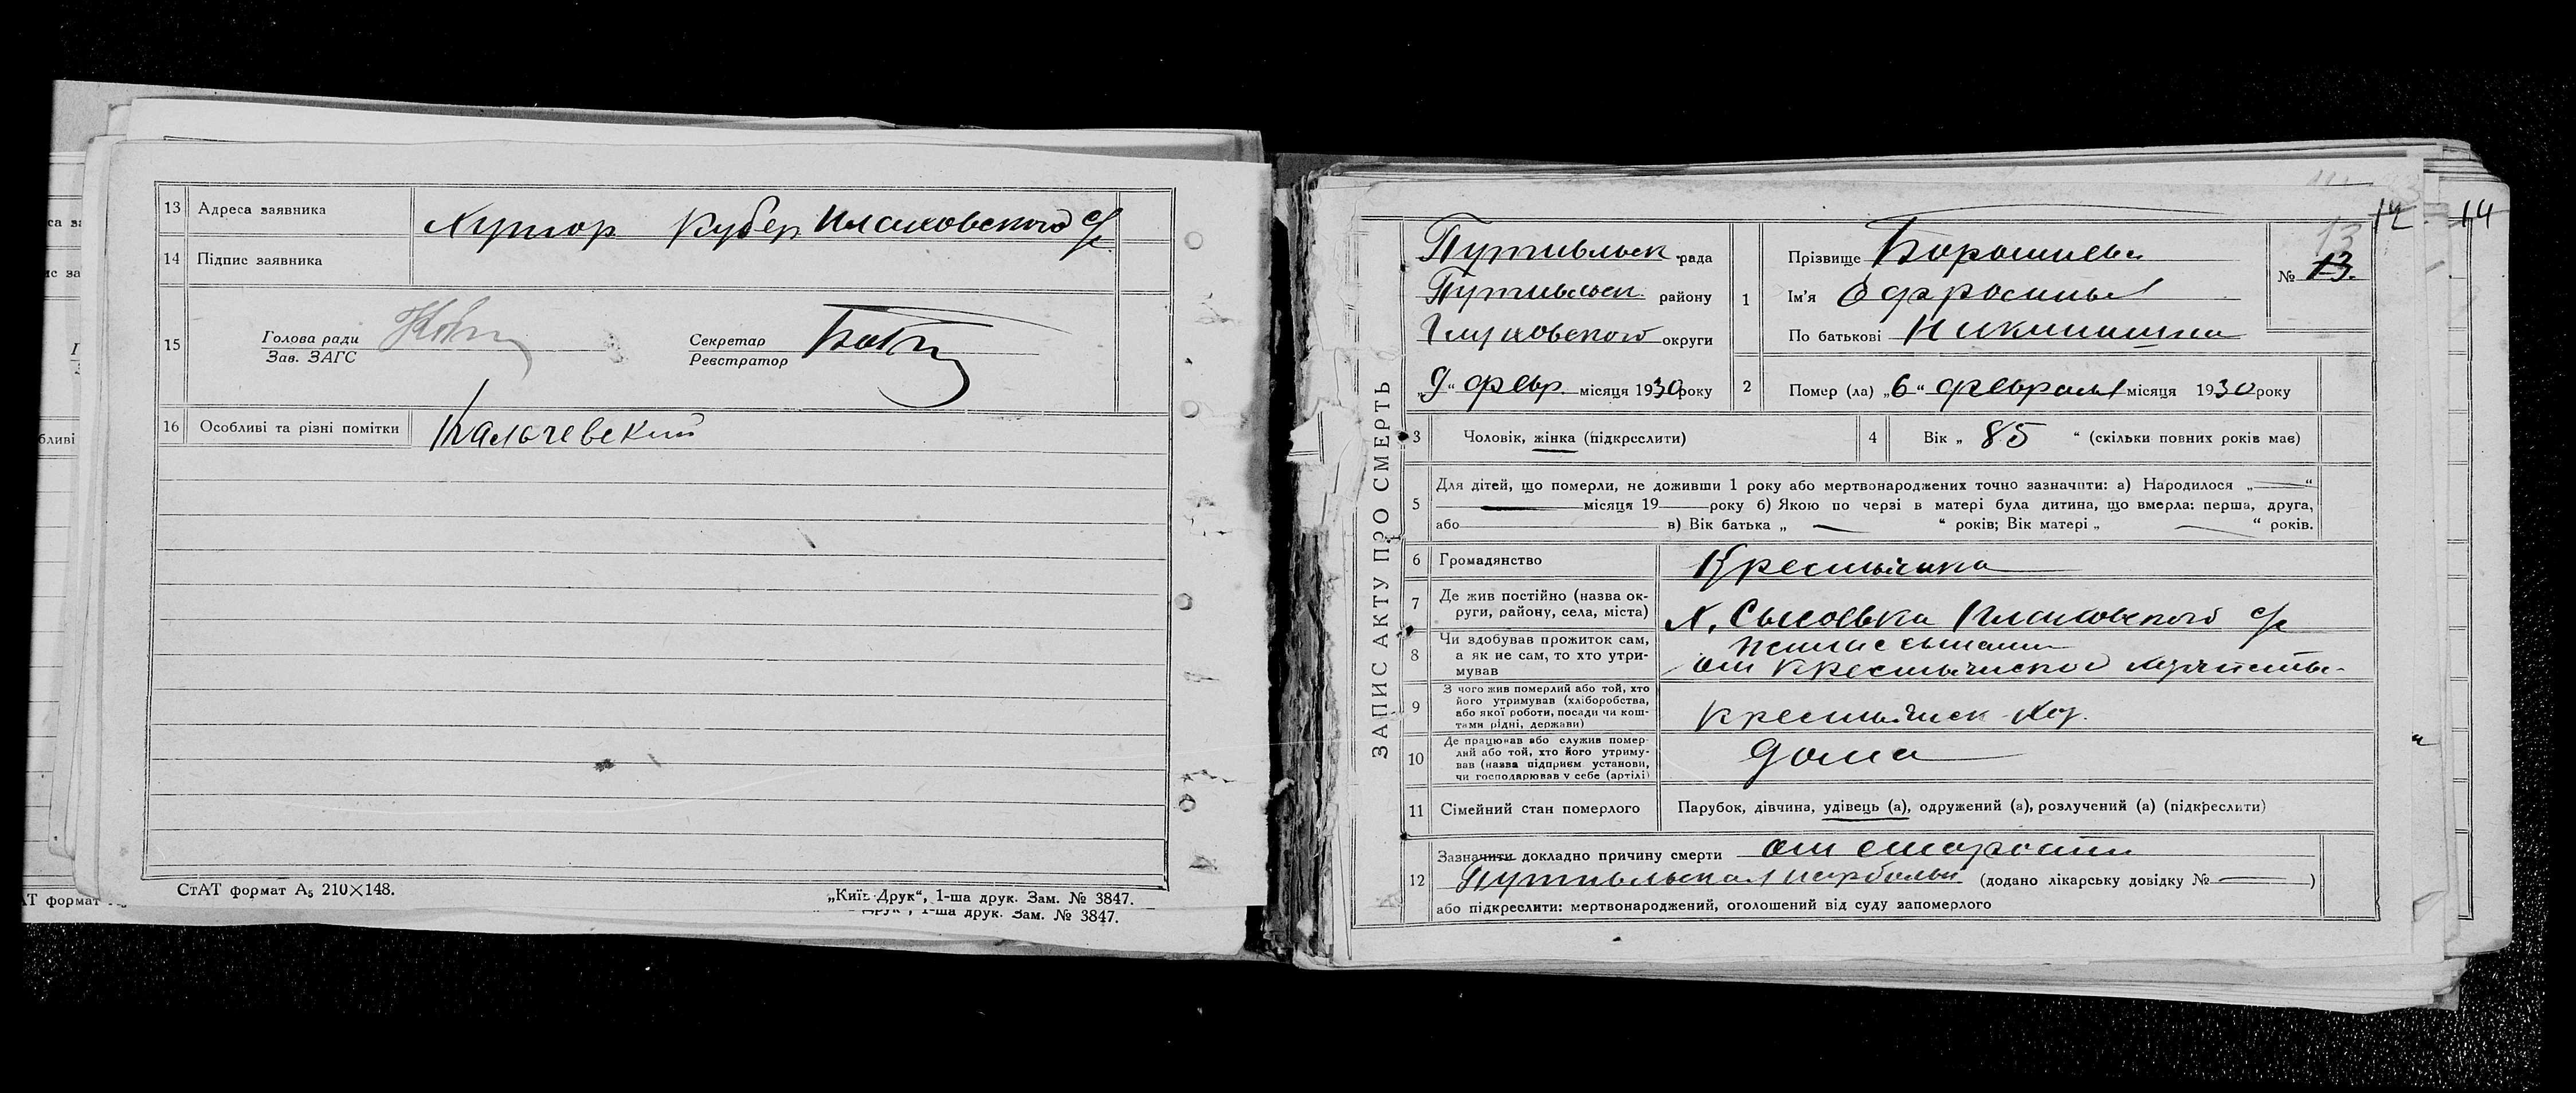 13 Адреса заявника Хутор Кубер Ильиновского с/с
14 Підпис заявника
15 Голова ради
Зав. ЗАГС
Секретар
Реєстратор
16 Особливі та різні помітки Кальчевский
СтАТ формат А₅ 210×148.
„Київ-Друк“, 1-ша друк. Зам. № 3847.
1-ша друк. Зам. № 3847.
ЗАПИС АКТУ ПРО СМЕРТЬ
12 14
Путивльск рада
Путивльск району
Глуховского округи
„9“ февр. місяця 1930 року
1 Прізвище
Ім'я Ефросинья
По батькові Никитишна
13
№ 13.
2 Помер (ла) „6“ февраля місяця 1930 року
3 Чоловік, жінка (підкреслити)
4 Вік „ 85 “ (скільки повних років має)
5 Для дітей, що померли, не доживши 1 року або мертвонароджених точно зазначити: а) Народилося „ — “
— місяця 19 — року б) Якою по черзі в матері була дитина, що вмерла: перша, друга,
або в) Вік батька „ — “ років; Вік матері „ — “ років.
6 Громадянство Крестьянка
7 Де жив постійно (назва ок-
руги, району, села, міста)
х. с/с
8 Чи здобував прожиток сам,
а як не сам, то хто утри-
мував
от крестьянского
9 З чого жив померлий або той, хто
його утримував (хліборобства,
або якої роботи, посади чи кош-
тами рідні, держави)
крестьянск. хоз.
10 Де працював або служив помер-
лий або той, хто його утриму-
вав (назва підприєм установи,
чи господарював у себе (артілі)
дома
11 Сімейний стан померлого Парубок, дівчина, удівець (а), одружений (а), розлучений (а) (підкреслити)
12 Зазначити докладно причину смерти от старости
Путивльская (додано лікарську довідку № — )
або підкреслити: мертвонароджений, оголошений від суду запомерлого